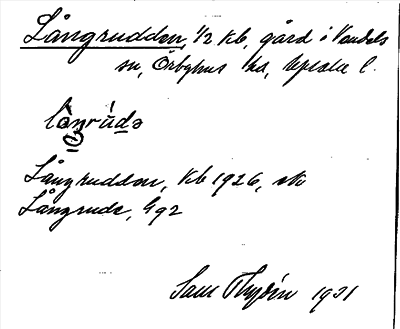 Långrudden, 1/2 kb, gård i Vendels
sn, Örbyhus hd, Upsala l.
Långrudden, kb 1926,
Långrudc, Gg2
Sam Thydén 1931